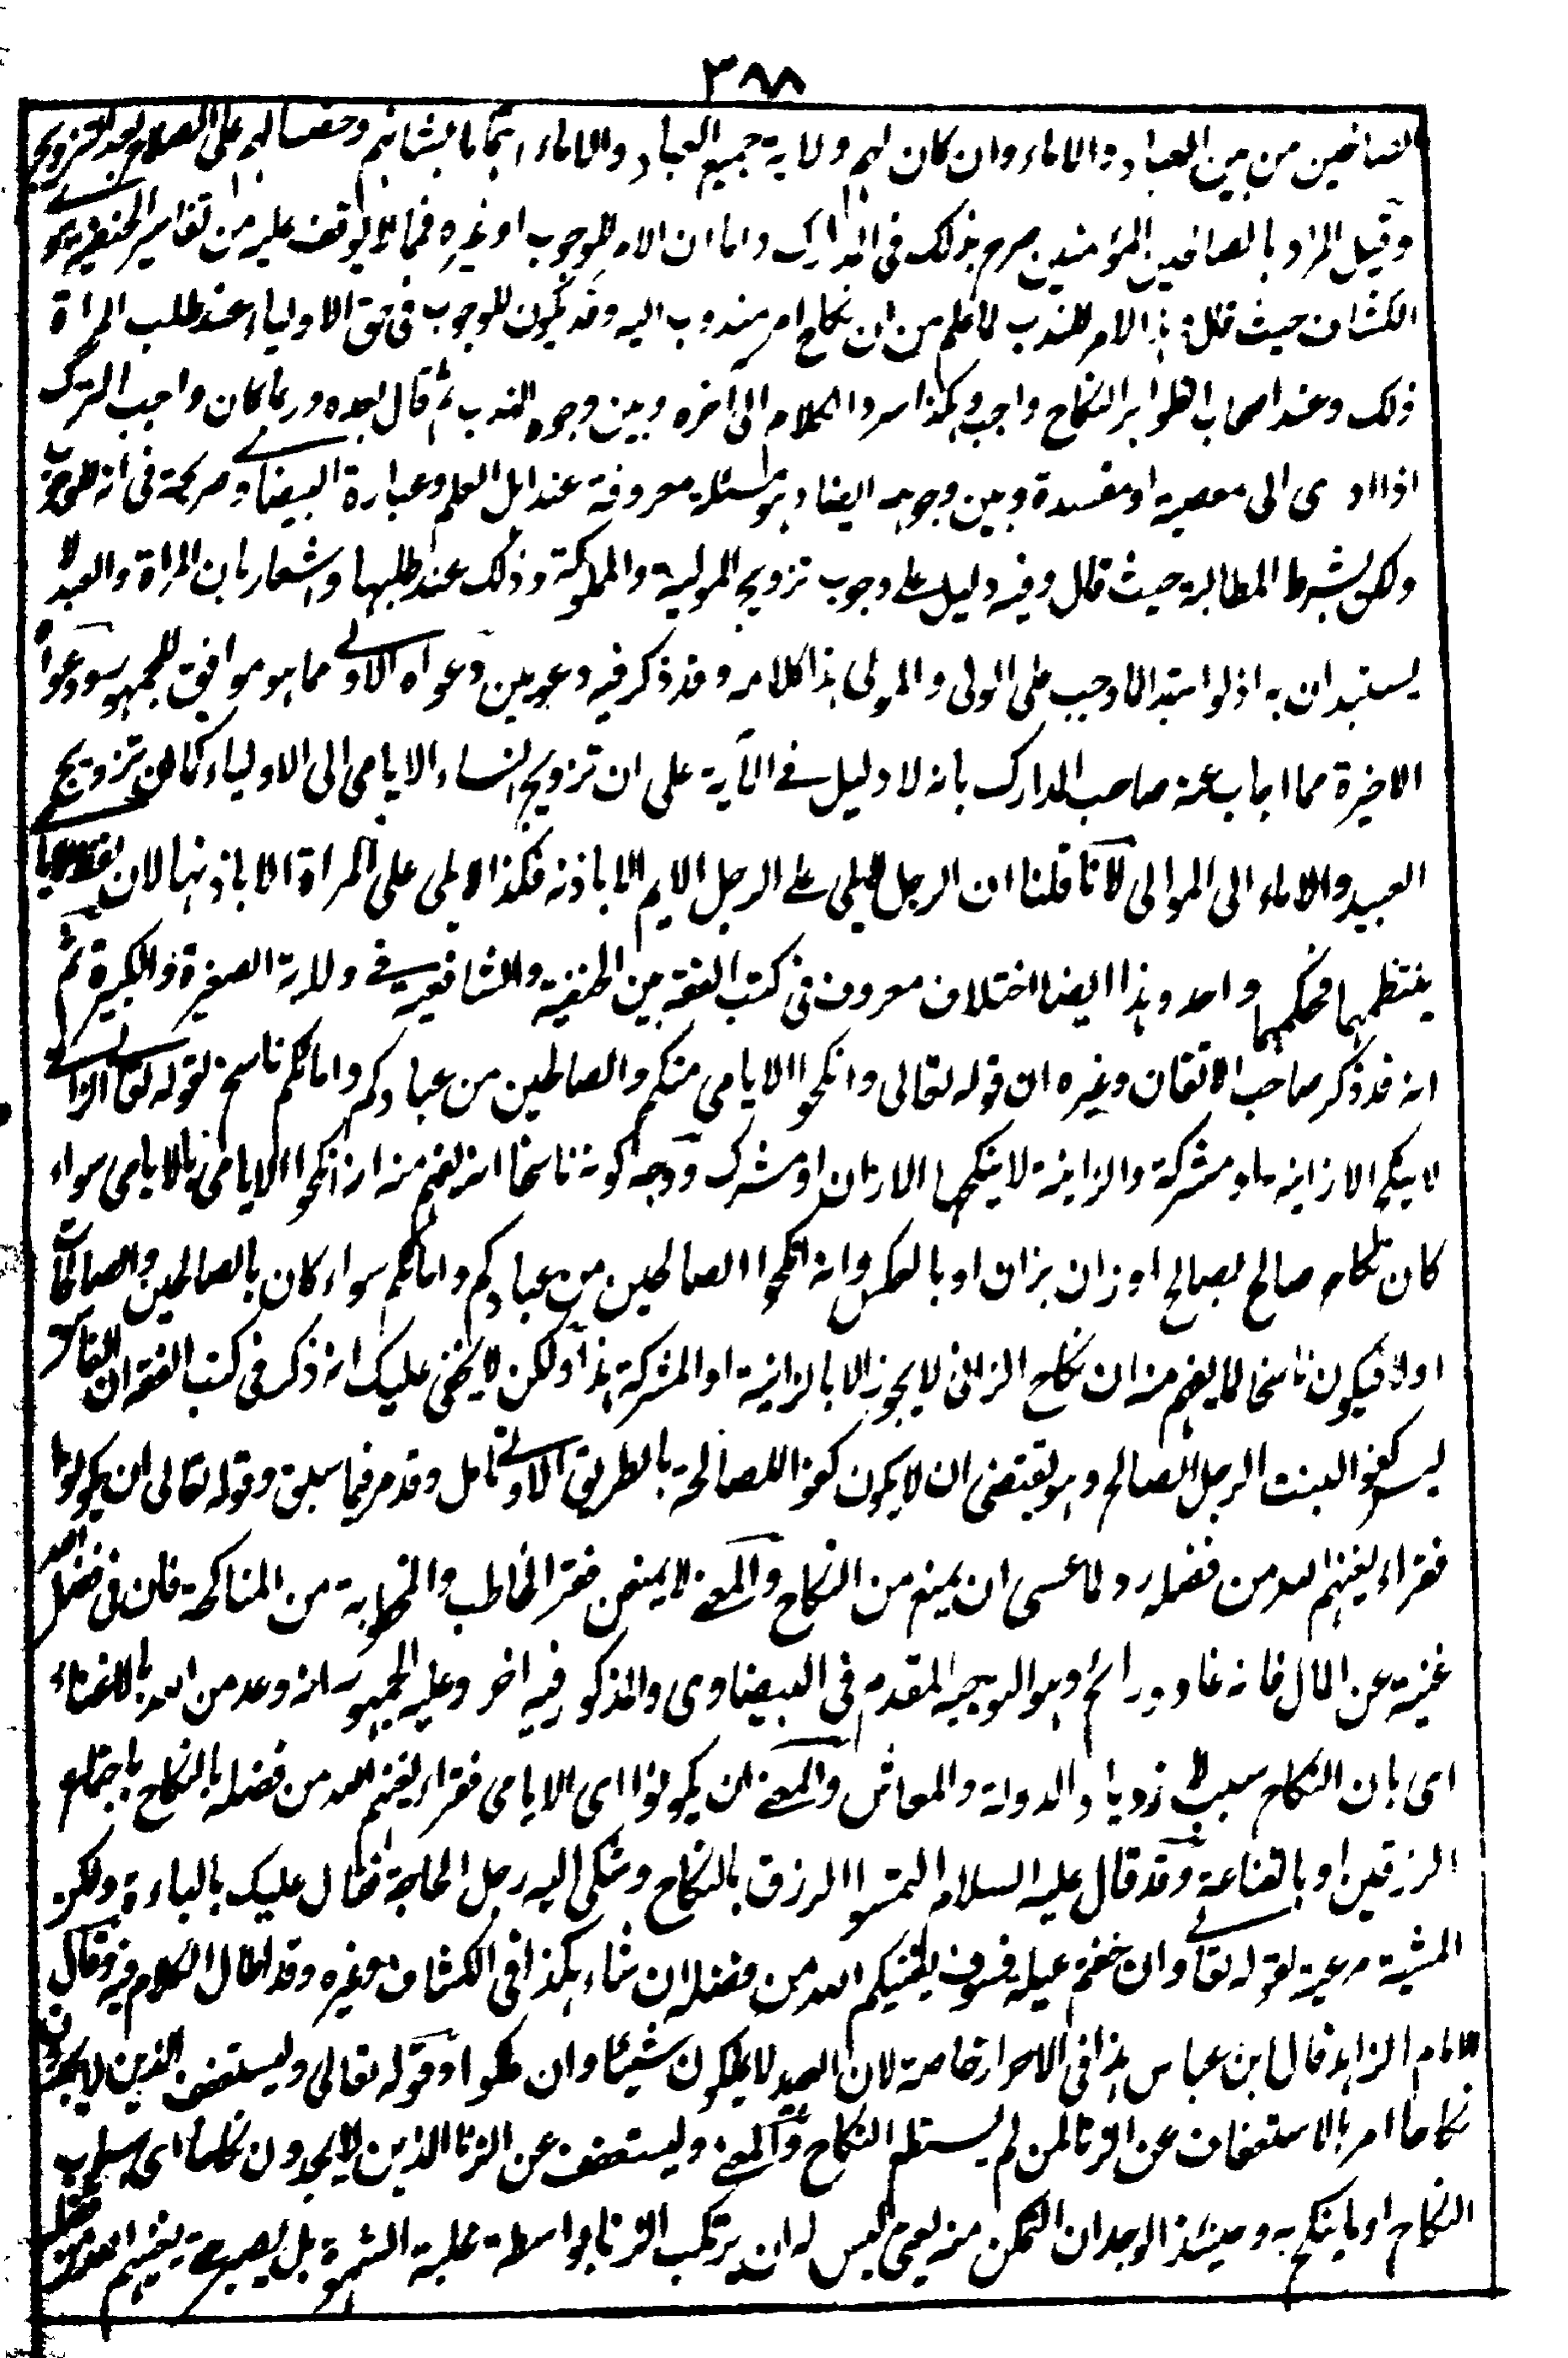 ٣٨٨
الصالحين من بين العباد والاماء وان كان لهم ولاية جميع العباد والاماء اهتماما بشانهم وحفظا لهم على الصلاح بعد التزويج
وقيل المراد بالصالحين المؤمنين صرح بذلك في المدارك واما ان الامر للوجوب او غيره فمما لا يوقف عليه من تفاسير الحنفية سوى
الكشاف حيث قال هذا الامر للندب لما علم من ان النكاح امر مندوب اليه وقد يكون للوجوب في حق الاولياء عند طلب المراة
ذلك وعند اصحاب الظواهر النكاح واجب وهكذا سرد الكلام الى اخره وبين وجوه الندب ثم قال بعده وربما كان واجب الترك
اذا ادى الى معصية او مفسدة وبين وجوهه ايضا وهو مسئلة معروفة عند اهل العلم وعبارة البيضاوي صريحة في انه للوجوب
ولكن بشرط المطالبة حيث قال وفيه دليل على وجوب تزويج المولية والمملوكة وذلك عند طلبها واشعار بان المراة والعبد لا
يستبدان به اذ لو استبدا لما وجب على الولي والمولى هذا كلامه وقد ذكر فيه دعويين دعواه الاولى مما هو موافق للجمهور ودعواه
الاخيرة مما اجاب عنه صاحب المدارك بانه لا دليل في الآية على ان تزويج النساء الايامى الى الاولياء كما ان تزويج
العبيد والاماء الى الموالى لانا قلنا ان الرجل لا يلي على الرجل الايم الا باذنه فكذا لا يلي على المراة الا باذنها لان لفظ الايامى
ينتظمهما فحكمهما واحد وهذا ايضا اختلاف معروف في كتب الفقه بين الحنفية والشافعية في ولاية الصغيرة والكبيرة ثم
انه قد ذكر صاحب الاتقان وغيره ان قوله تعالى وانكحوا الايامى منكم والصالحين من عبادكم وامائكم ناسخ لقوله تعالى الزاني
لا ينكح الا زانية او مشركة والزانية لا ينكحها الا زان او مشرك ووجه كونه ناسخا انه يفهم منه انه انكحوا الايامى بالايامى سواء
كان نكاح صالح بصالح او زان بزان او بالعكس وانه انكحوا الصالحين من عبادكم وامائكم سواء كان بالصالحين والصالحات
اولا فيكون ناسخا لما يفهم منه ان نكاح الزاني لا يجوز الا بالزانية او المشركة هذا ولكن لا يخفى عليك انه ذكر في كتب الفقه ان الفاسق
ليس كفوا لبنت الرجل الصالح وهو يقتضي ان لا يكون كفوا للصالحة بالطريق الاولى تامل وقد مر فيما سبق وقوله تعالى ان يكونوا
فقراء يغنهم الله من فضله رد لما عسى ان يمنع من النكاح والمعنى لا يمنعن فقر الخاطب والمخطوبة من المناكحة فان في فضل الله
غنية عن المال فانه غاد ورائح وهو التوجيه المقدم في البيضاوى والمذكور فيه اخر وعليه الجمهور انه وعد من الله بالاغناء
اى بان النكاح سبب لازدياد الدولة والمعاش والمعنى ان يكونوا اى الايامى فقراء يغنهم الله من فضله بالنكاح باجتماع
الرزقين او بالقناعة وقد قال عليه السلام التمسوا الرزق بالنكاح وشكى اليه رجل الحاجة فقال عليك بالباءة ولكن
المشية مرعية لقوله تعالى وان خفتم عيلة فسوف يغنيكم الله من فضله ان شاء هكذا في الكشاف وغيره وقد اطال الكلام فيه وقال
الامام الزاهد قال ابن عباس هذا في الاحرار خاصة لان العبد لا يملكون شيئا وان ملكوا وقوله تعالى وليستعفف الذين لا يجدون
نكاحا امر بالاستعفاف عن الزنا لمن لم يستطع النكاح والمعنى وليستعفف عن الزنا الذين لا يجدون نكاحا اى اسباب
النكاح او ما ينكح به وحينئذ الوجدان التمكن منه يعنى ليس له ان يرتكب الزنا بواسطة غلبة الشهوة بل يصبر حتى يغنيهم الله من فضله